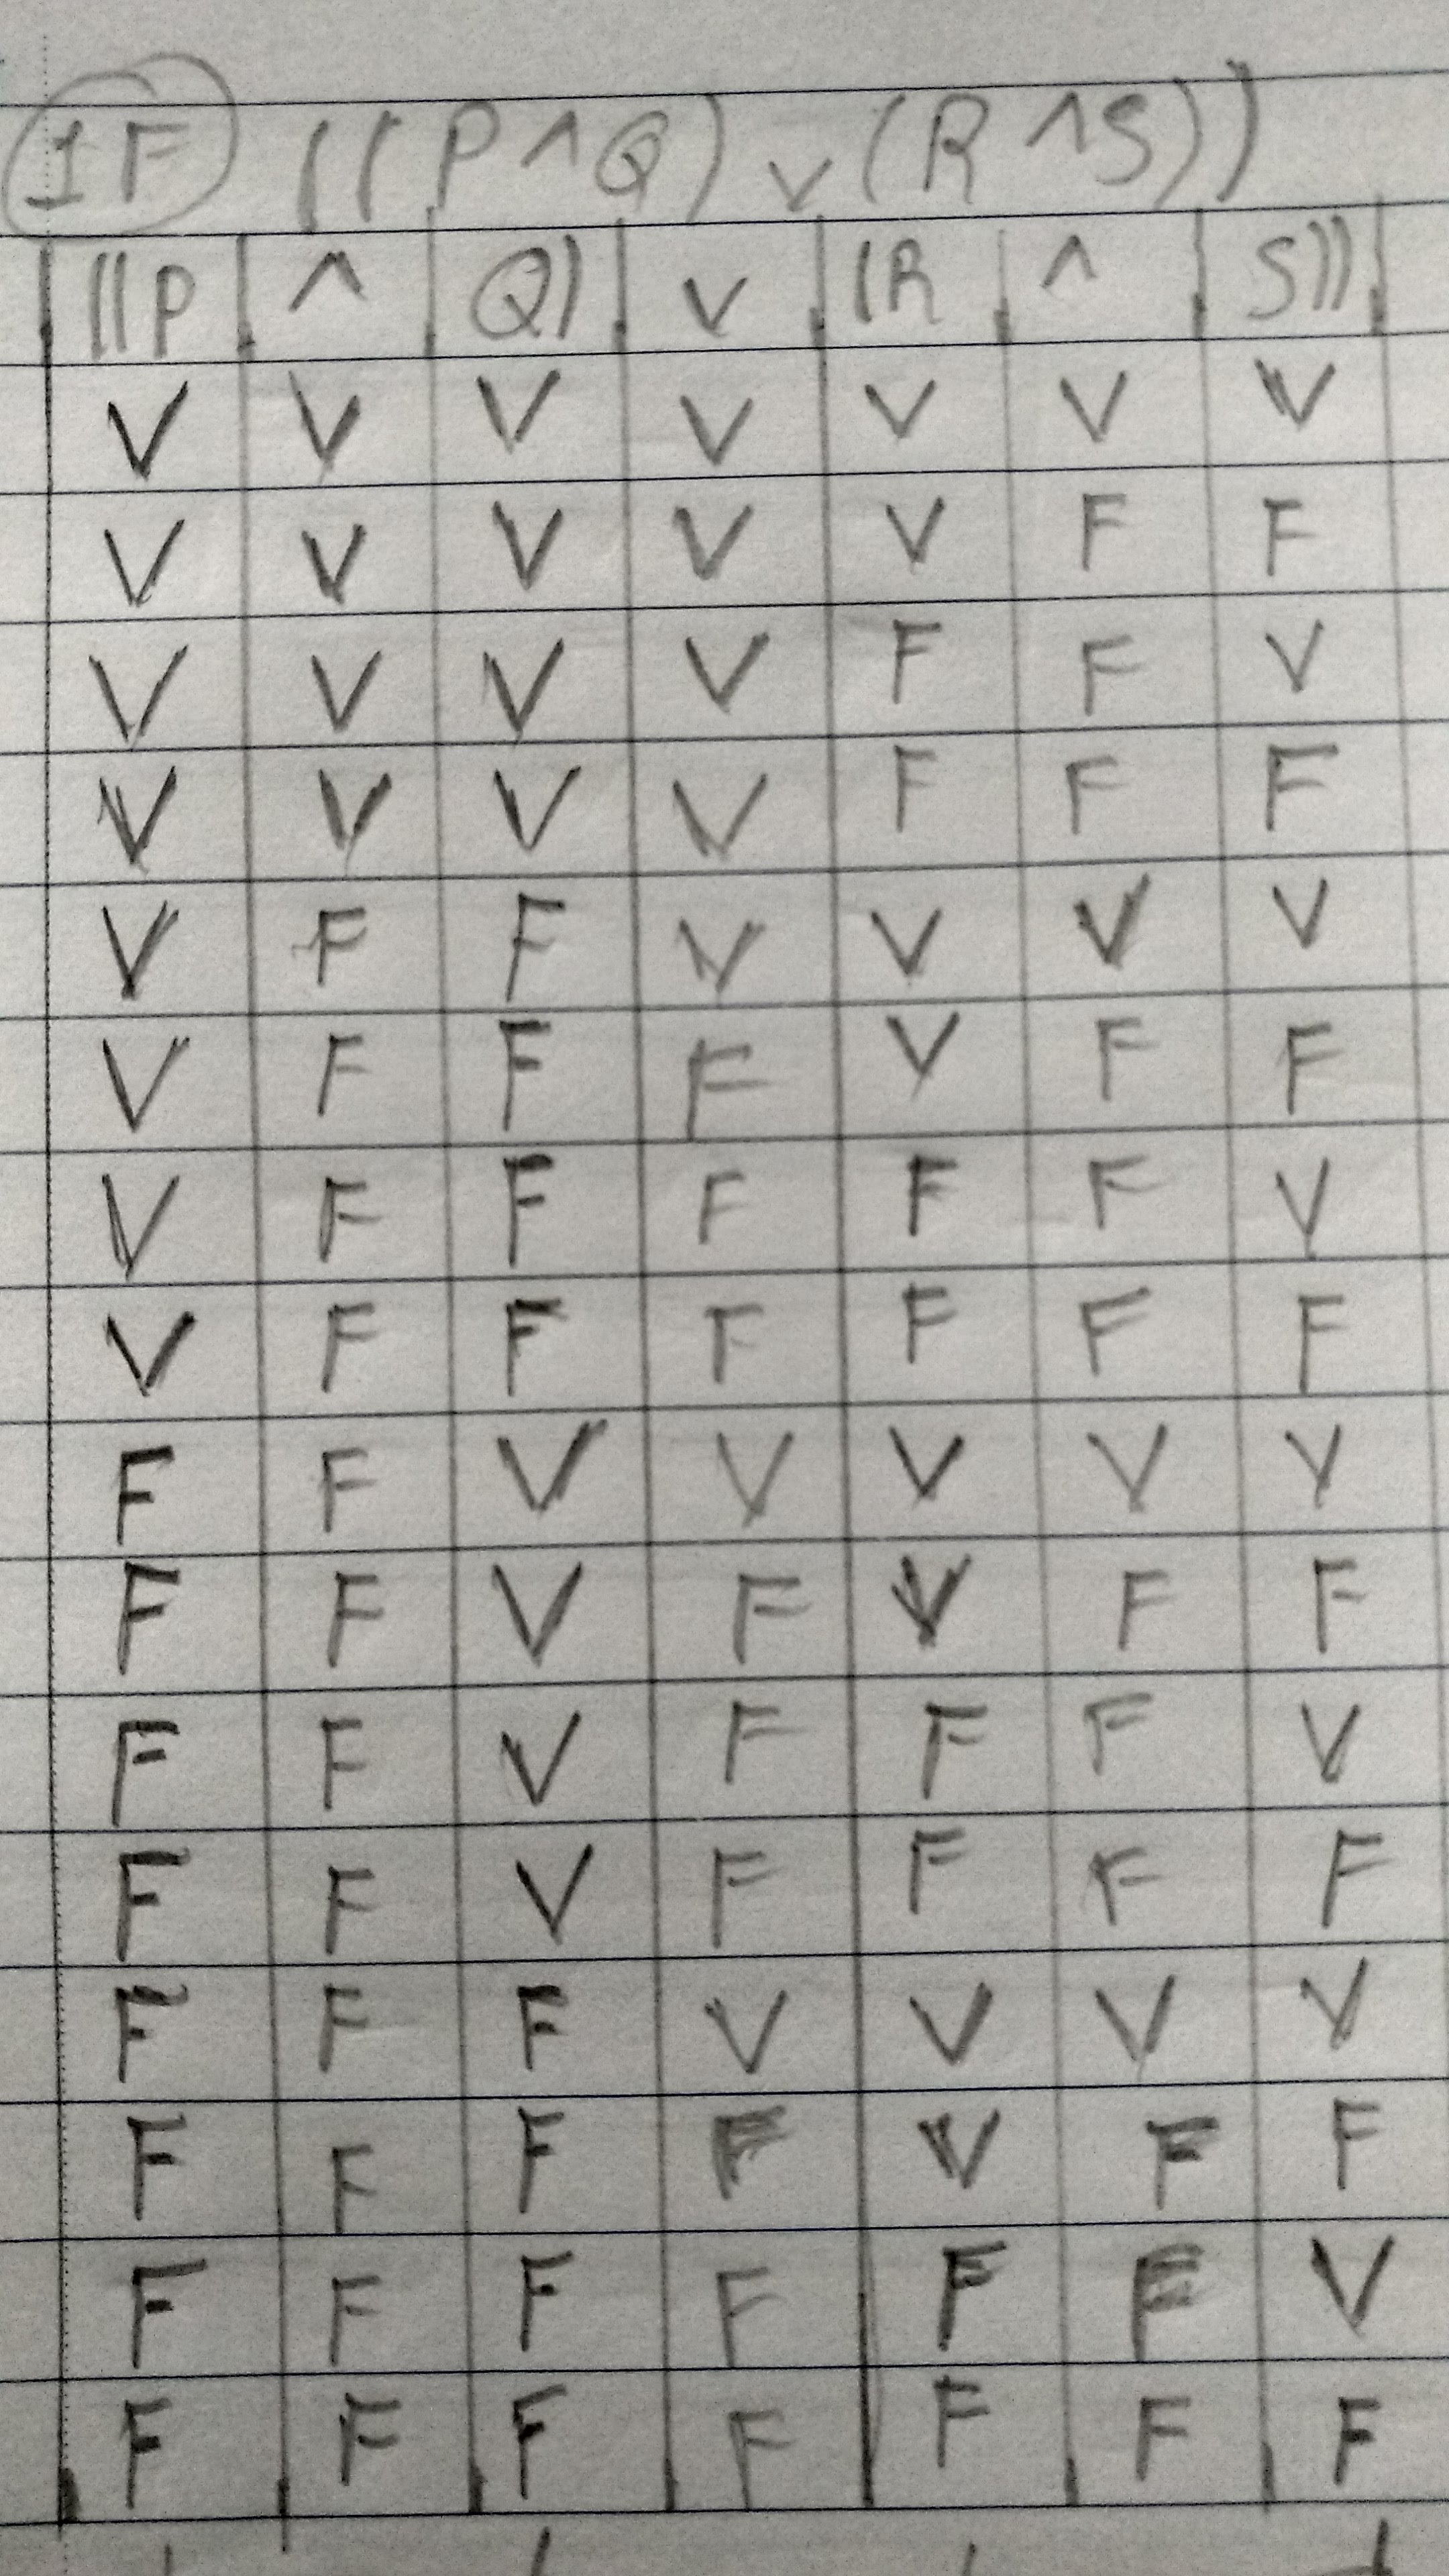 1F ((P ∧ Q) ∨ (R ∧ S))
((P ∧ Q) ∨ (R ∧ S))
V V V V V V V
V V V V V F F
V V V V F F V
V V V V F F F
V F F V V V V
V F F F V F F
V F F F F F V
V F F F F F F
F F V V V V V
F F V F V F F
F F V F F F V
F F V F F F F
F F F V V V V
F F F F V F F
F F F F F F V
F F F F F F F